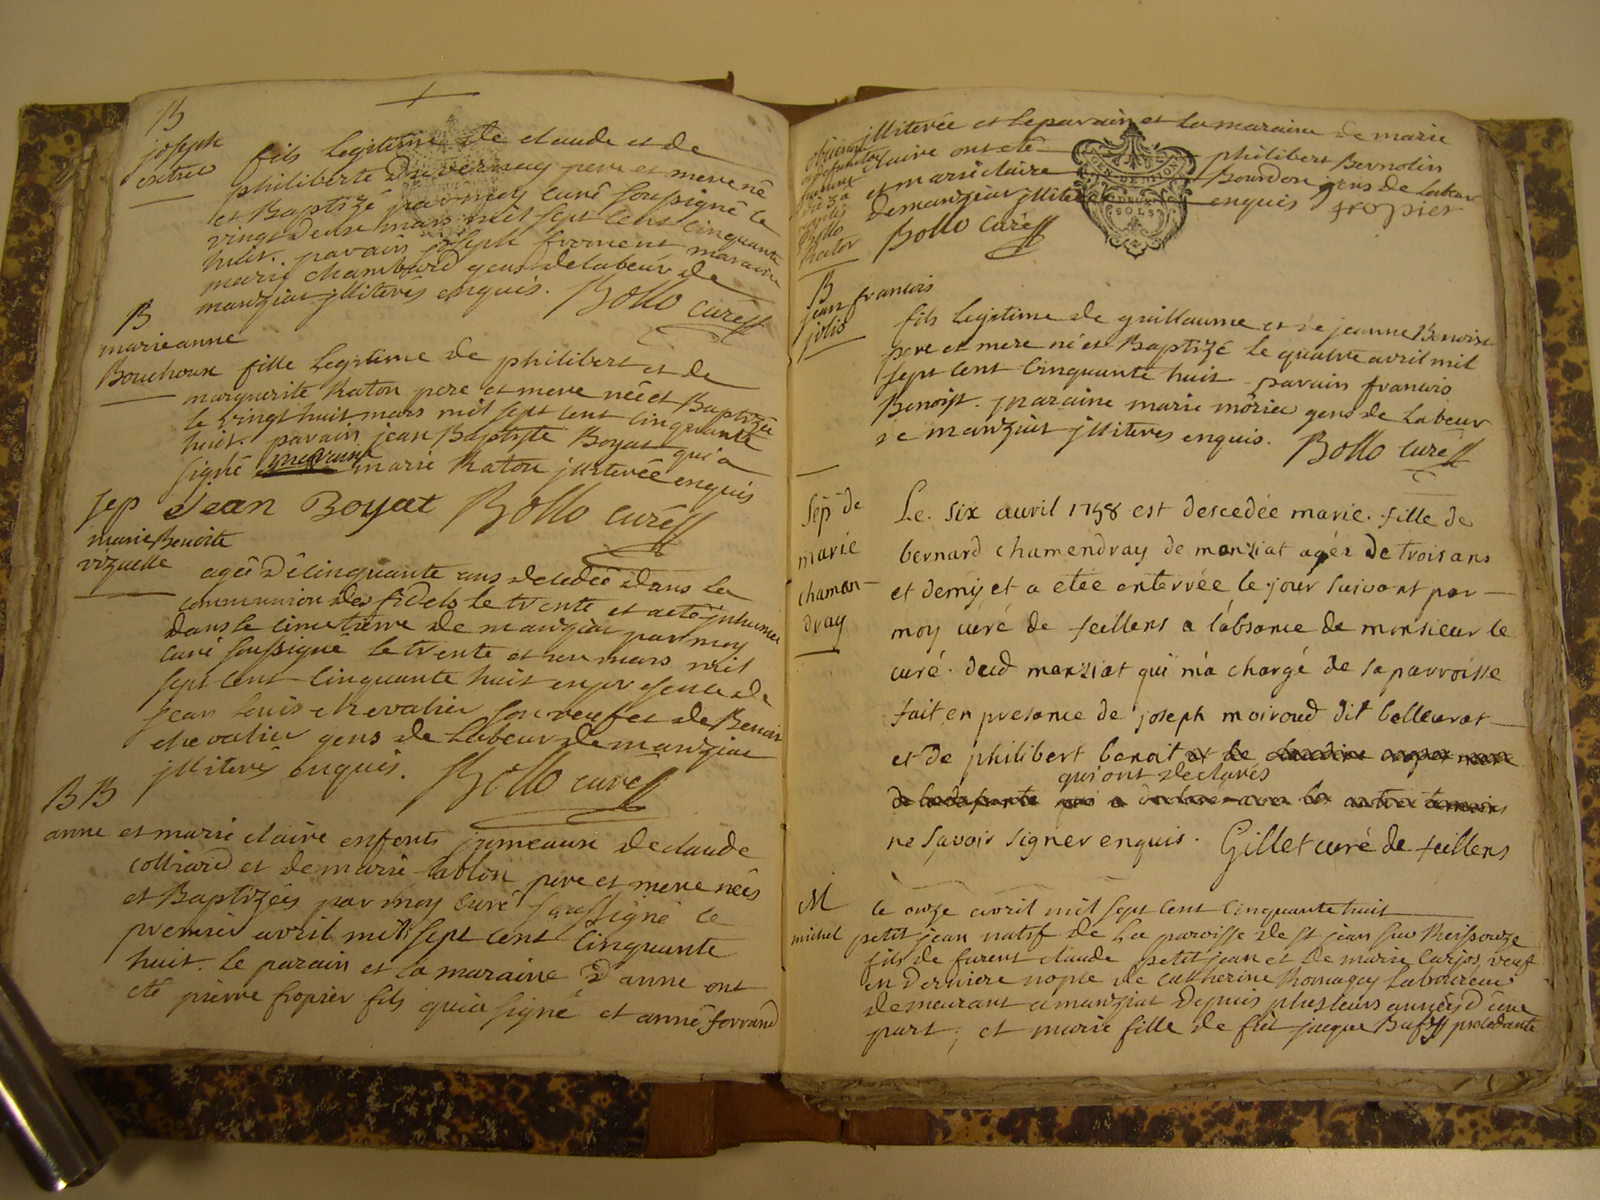 B
joseph
fils legitime de claude et de
philiberte Duvernay pere et mere né
et Baptizé par moy curé soussigné le
vingt deux mars mil sept cent cinquante
huit. parain joseph froment maraine
marie chambard gens de labeur de
manziat jlliterés enquis. Bollo curé
B
marie anne
Bouchoux fille legitime de philibert et de
marguerite Raton pere et mere née et Baptizée
le vingt huit mars mil sept cent cinquante
huit. parain jean Baptiste Boyat qui a
signé maraine marie Raton jlliterée enquis
Sep Jean Boyat Bollo curé
marie Benoite
vizuelle
agée de cinquante ans decedée dans la
communion des fidels le trente et a eté jnhumée
dans le cimetierre de manziat par moy
curé soussigné le trente et un mars mil
sept cent cinquante huit en presence de
jean Louis chevalier son veuf et de Benoit
chevalier gens de Labeur de manziat
jlliterés enquis. Bollo curé
B B
anne et marie claire enfents jumeaux de claude
colliard et de marie tablon pere et mere nées
et Baptizées par moy curé soussigné le
premier avril mil sept cent cinquante
huit. le parain et la maraine d'anne ont
eté pierre fropier fils qui a signé et anne ferrand
jlliterée et le parain et la maraine de marie
claire ont eté philibert Bernolin
et marie claire Bourdon gens de labeur
de manziat jlliterés enquis fropier
Bollo curé
B
jean francois
jolis
fils legitime de guillaume et de jeanne Benoist
pere et mere né et Baptizé le quatre avril mil
sept cent cinquante huit parain francois
Benoist. maraine marie morier gens de Labeur
de manziat jlliterés enquis. Bollo curé
Sep de
marie
chaman-
dray
Le. six avril 1758 est descedée marie. fille de
bernard chamendray de manziat agée de trois ans
et demy et a etée enterrée le jour suivant par
moy curé de feillens a l'absance de monsieur le
curé. dud manziat qui m'a chargé de sa parroisse
fait en presance de joseph moiroud dit belleurat
et de philibert benoit et de
qui ont declarés
ne sçavoir signer enquis. Gillet curé de feillens
M
michel
le onze avril mil sept cent cinquante huit
petit jean natif de La paroisse de st jean sur Reissouze
fils de furent claude petit jean et de marie carjos, veuf
en derniere nopce de catherine Romagey Laboureur
demeurant a manziat depuis plusieurs années d'une
part; et marie fille de fût jacque Buffy procedante